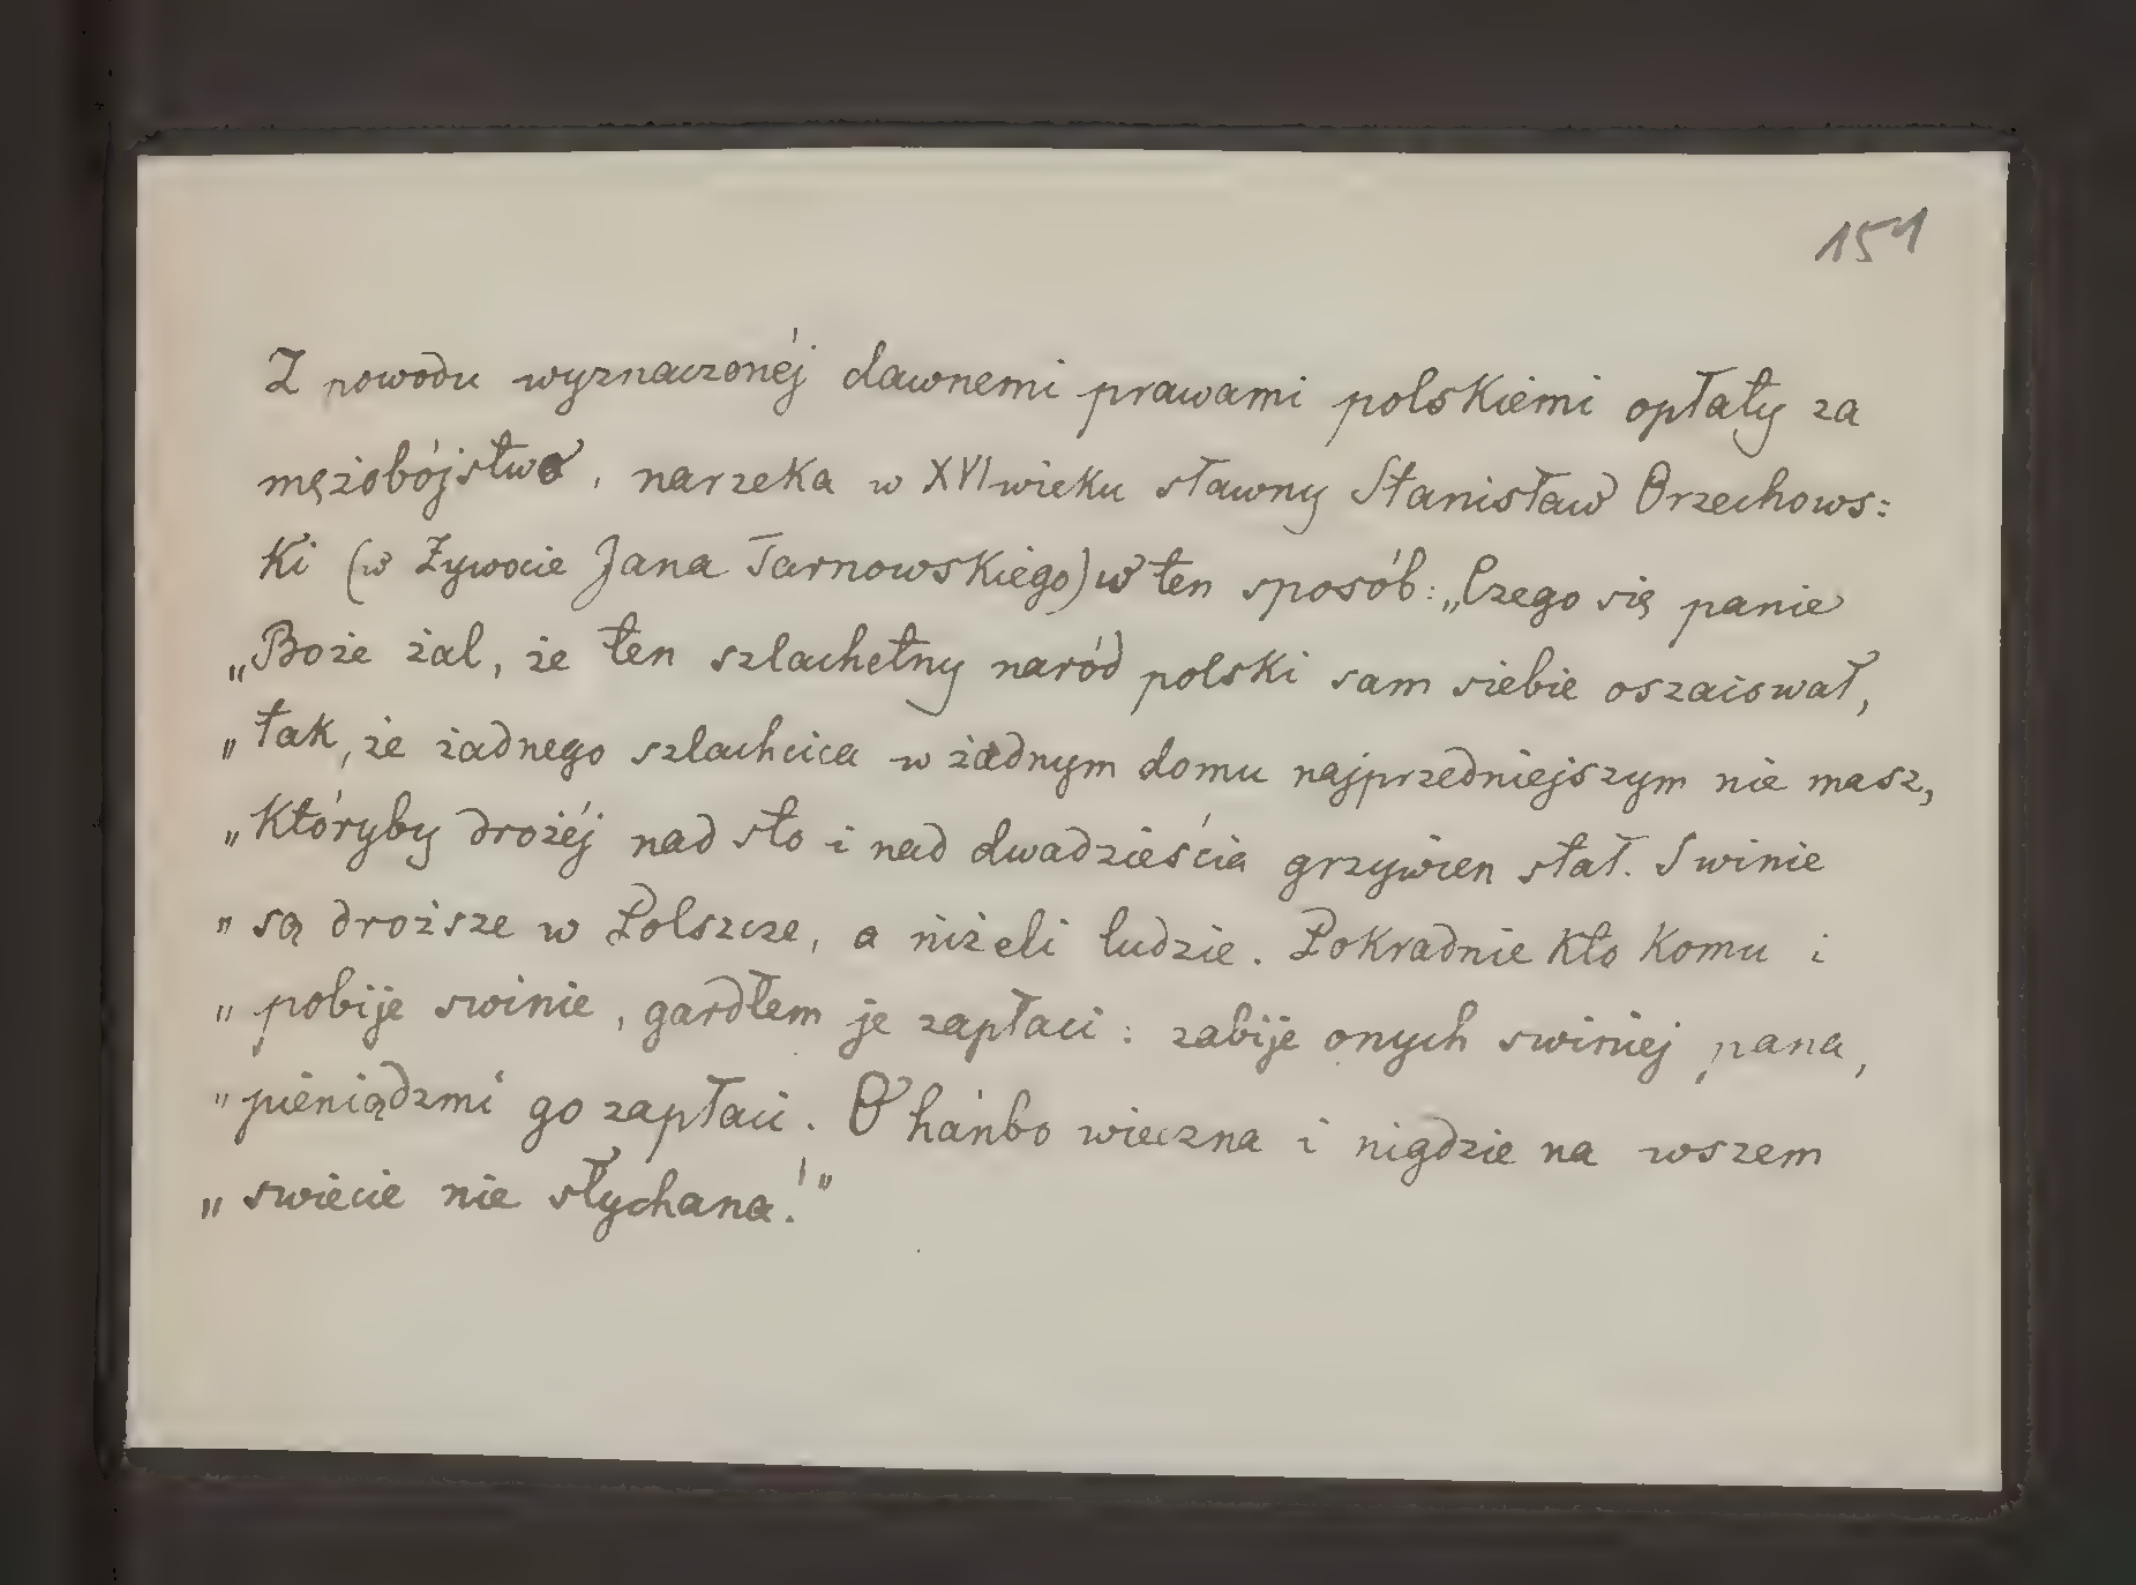 151
Z powodu wyznaczonéj dawnemi prawami polskiemi opłaty za
mężobójstwo, narzeka w XVI wieku sławny Stanisław Orzechows:
ki (w Żywocie Jana Tarnowskiego) w ten sposób: „Czego się panie
„Boże żal, że ten szlachetny naród polski sam siebie oszacował,
„tak, że żadnego szlachcica w żadnym domu najprzedniejszym nie masz,
„któryby drożéj nad sto i nad dwadzieścia grzywien stał. Swinie
„są droższe w Polszcze, a niżeli ludzie. Pokradnie kto komu i
„pobije swinie, gardłem je zapłaci: zabije onych swiniej pana,
„pieniądzmi go zapłaci. O hańbo wieczna i nigdzie na wszem
„swiecie nie słychana!”